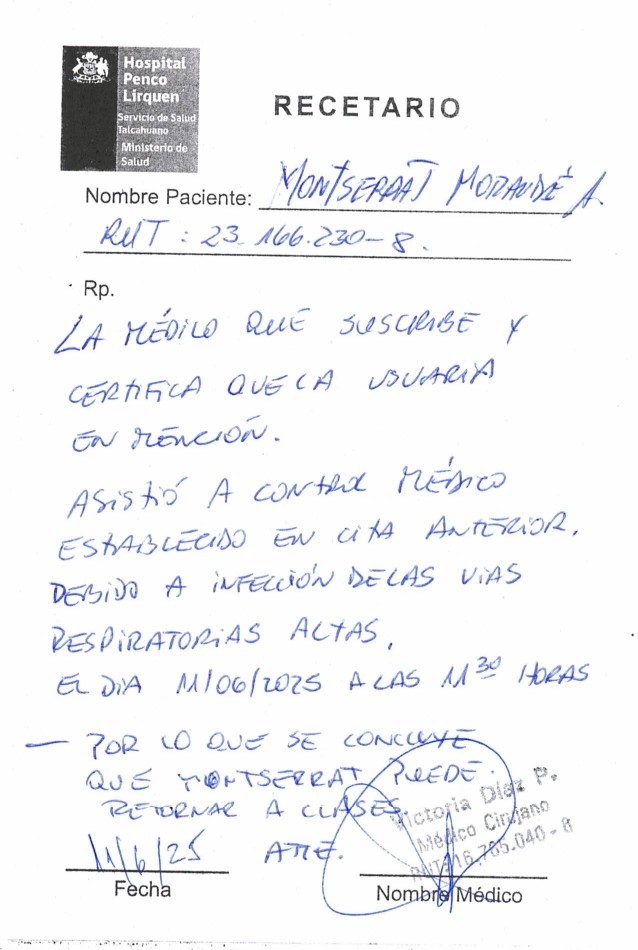 Hospital
Penco
Lirquen
Servicio de Salud
Talcahuano
Ministerio de
Salud
RECETARIO
Nombre Paciente: MONTSERRAT MORANDÉ A.
RUT : 23.166.230-8.
Rp.
LA MÉDICO QUE SUSCRIBE Y
CERTIFICA QUE LA USUARIA
EN MENCIÓN.
ASISTIÓ A CONTROL MÉDICO
ESTABLECIDO EN CITA ANTERIOR,
DEBIDO A INFECCIÓN DE LAS VIAS
RESPIRATORIAS ALTAS,
EL DIA 11/06/2025 A LAS 11 30 HORAS
— POR LO QUE SE CONCLUYE
QUE MONTSERRAT PUEDE
RETORNAR A CLASES.
Victoria Díaz P.
Médico Cirujano
RUT: 16.765.040-8
11/6/25 ATTE.
Fecha
Nombre Médico